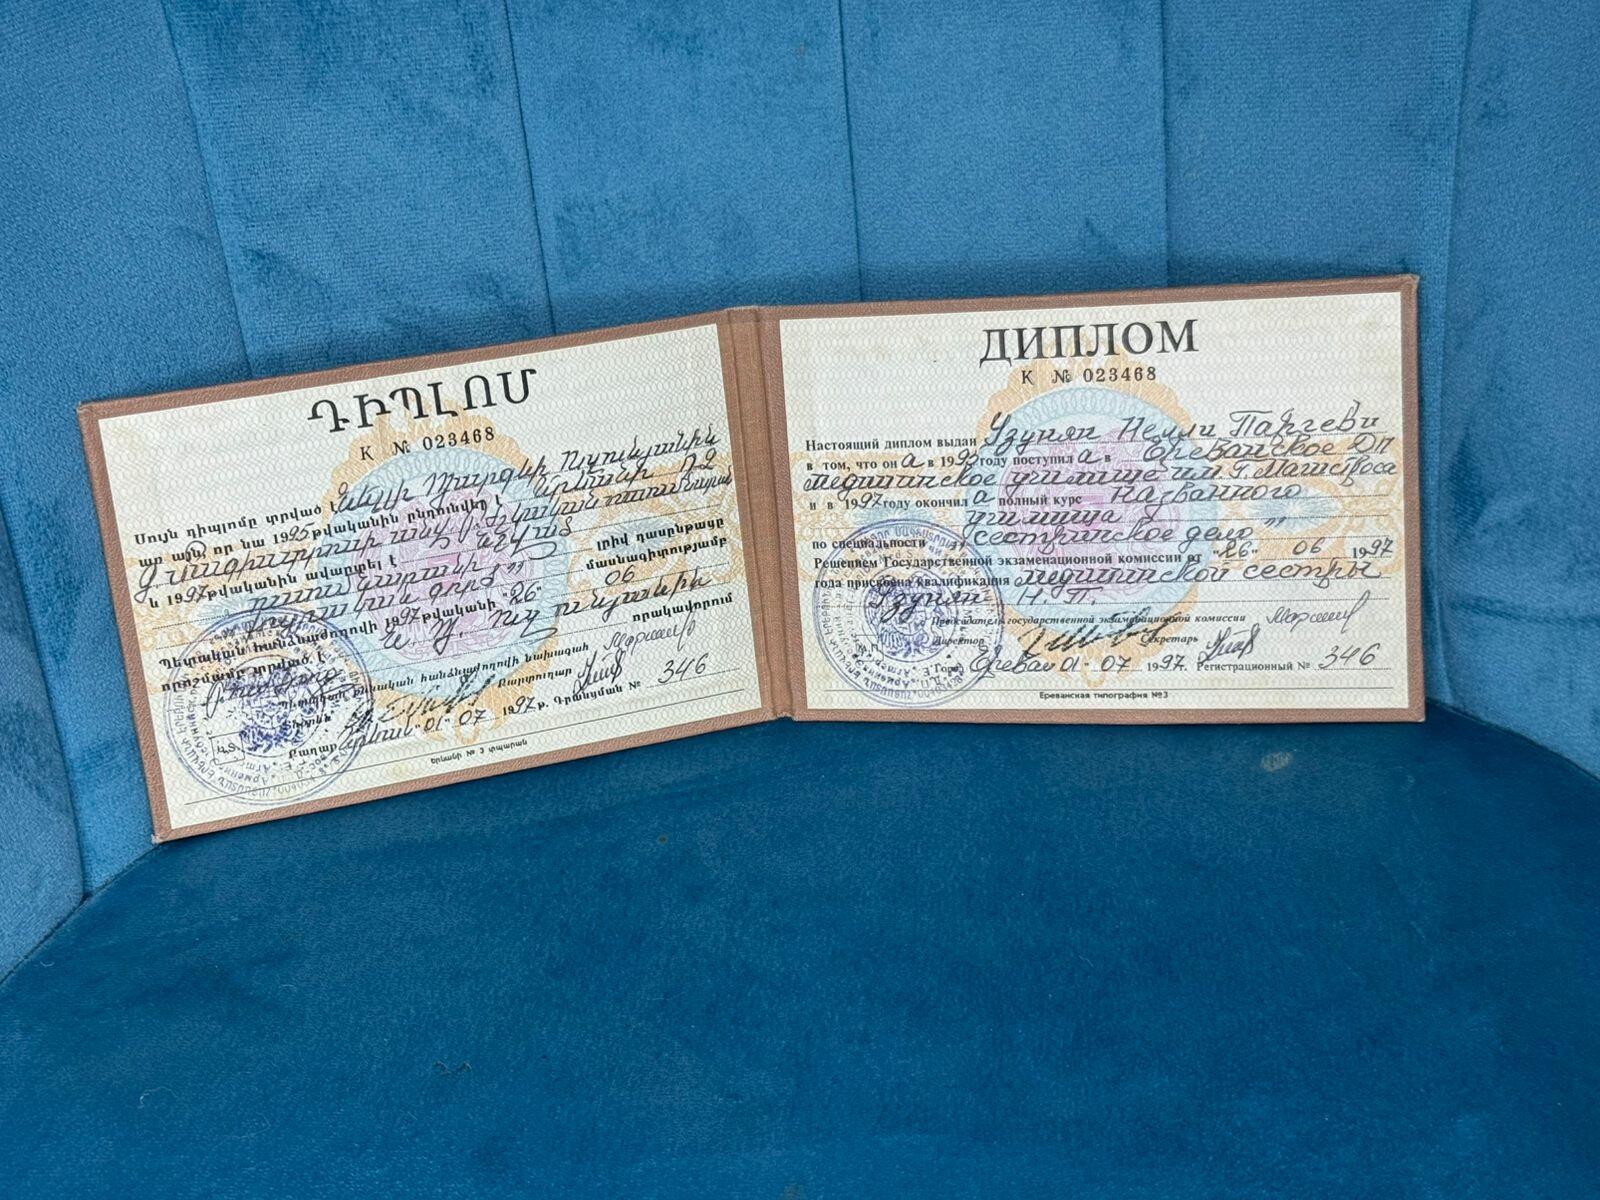 ԴԻՊԼՈՄ
К № 023468
Սույն դիպլոմը տրված է Նելլի Պարգևի Ուզունյանին
առ այն, որ նա 1995 թվականին ընդունվել է Երևանի
և 1997 թվականին ավարտել է լրիվ դասընթացը
մասնագիտությամբ
Պետական հանձնաժողովի 1997 թվականի "26" 06
որոշմամբ տրված է Ն. Պ. Ուզունյանին որակավորում
Պետական քննական հանձնաժողովի նախագահ
Տնօրեն Քարտուղար
Կ.Տ. Քաղաք Երևան "01" 07 1997 թ. Գրանցման № 346
Երևանի № 3 տպարան
ДИПЛОМ
К № 023468
Настоящий диплом выдан Узунян Нелли Паргеви
в том, что он а в 1995 году поступил а в Ереванское ДП
медицинское училище им. Г. Магистроса
и в 1997 году окончил а полный курс названного
училища
по специальности "сестринское дело"
Решением Государственной экзаменационной комиссии от "26" 06 1997
года присвоена квалификация медицинской сестры
Узунян Н. П.
Председатель государственной экзаменационной комиссии
Директор Секретарь
М.П. Город Ереван 01 - 07 1997. Регистрационный № 346
Ереванская типография №3